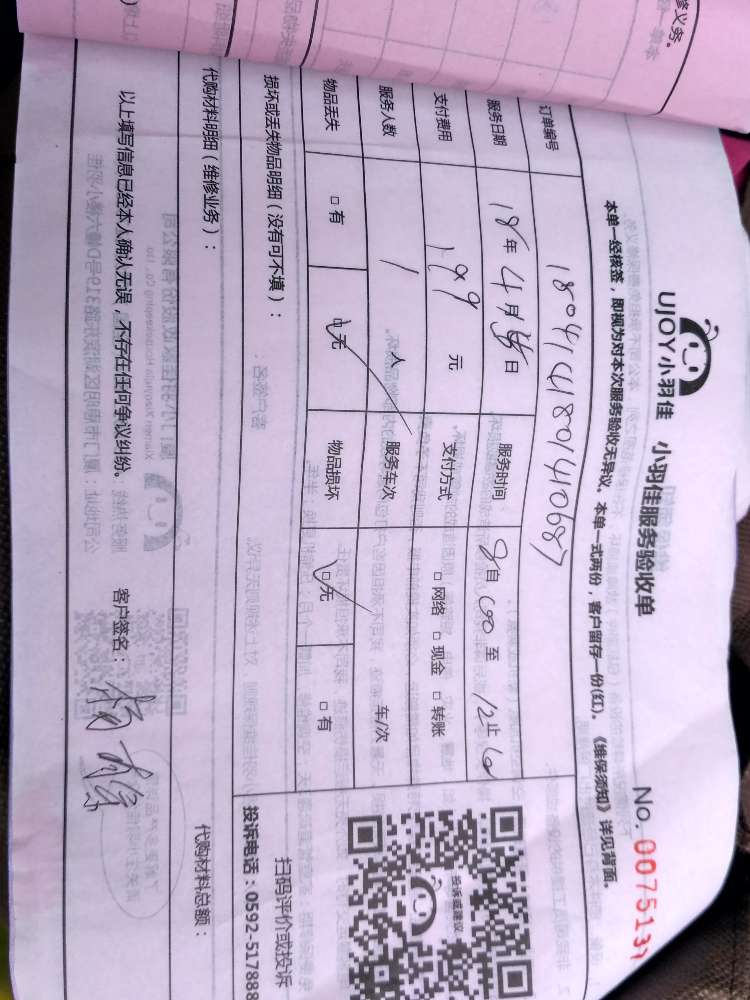 修义务。
UJOY小羽佳 小羽佳服务验收单
No. 0075137
本单一经核签，即视为对本次服务验收无异议。本单一式两份，客户留存一份(红)。《维保须知》详见背面。
订单编号 180414180140687
服务日期 18年4月 日 服务时间 8自00至12止
支付费用 199元 支付方式 □网络 □现金 □转账
服务人数 1人 服务车次 车/次
物品丢失 □有 □无 物品损坏 □无 □有
损坏或丢失物品明细（没有可不填）：
代购材料明细（维修业务）：
代购材料总额：
以上填写信息已经本人确认无误，不存在任何争议纠纷。 客户签名：杨
投诉或建议
扫码评价或投诉
投诉电话：0592-517888